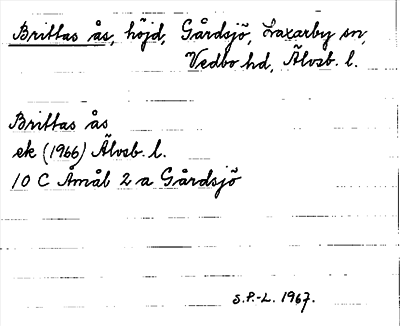 Brittas ås, höjd, Gårdsjö, Laxarby sn,
Vedbo hd, Älvsb. l.
Brittas ås
ek (1966) Älvsb. l.
10 C Åmål 2 a Gårdsjö
S.P.-L. 1967.